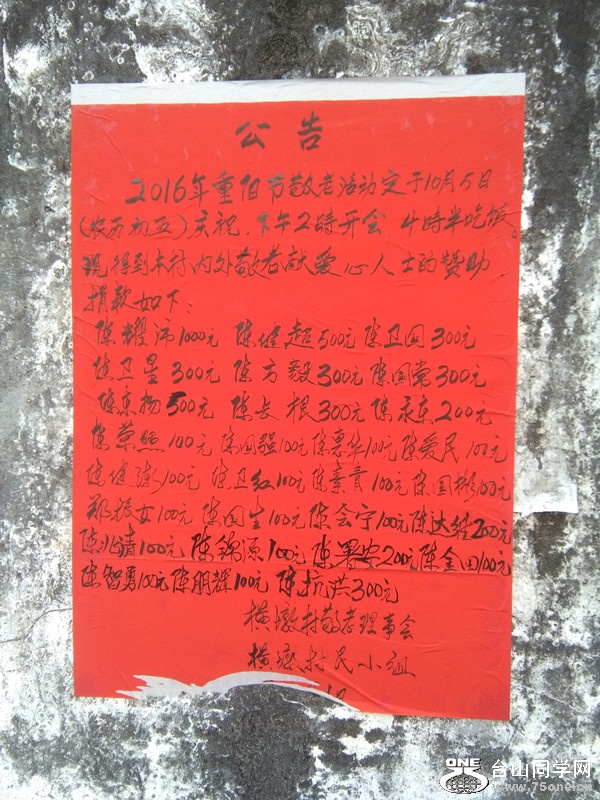 公告
2016年重阳节敬老活动定于10月5日
(农历初五)庆祝.下午2時开会 4時半吃饭。
现得到本村内外敬老献爱心人士的赞助
捐款如下:
陈耀 1000元 陈健超500元 陈卫国300元
陈卫星300元 陈方毅300元 陈国党300元
陈东扬500元 陈长根300元 陈永东200元
陈荣照100元 陈国强100元 陈惠华100元 陈爱民100元
陈健 100元 陈卫红100元 陈素青100元 陈国彬100元
郑振女100元 陈国生100元 陈会宁100元 陈达 200元
陈兆靖100元 陈锦源100元 陈 安200元 陈金田100元
陈智勇100元 陈朋辉100元 陈抗洪300元
横墩村敬老理事会
横墩村民小组
ONE 台山同学网
www.75one.cn